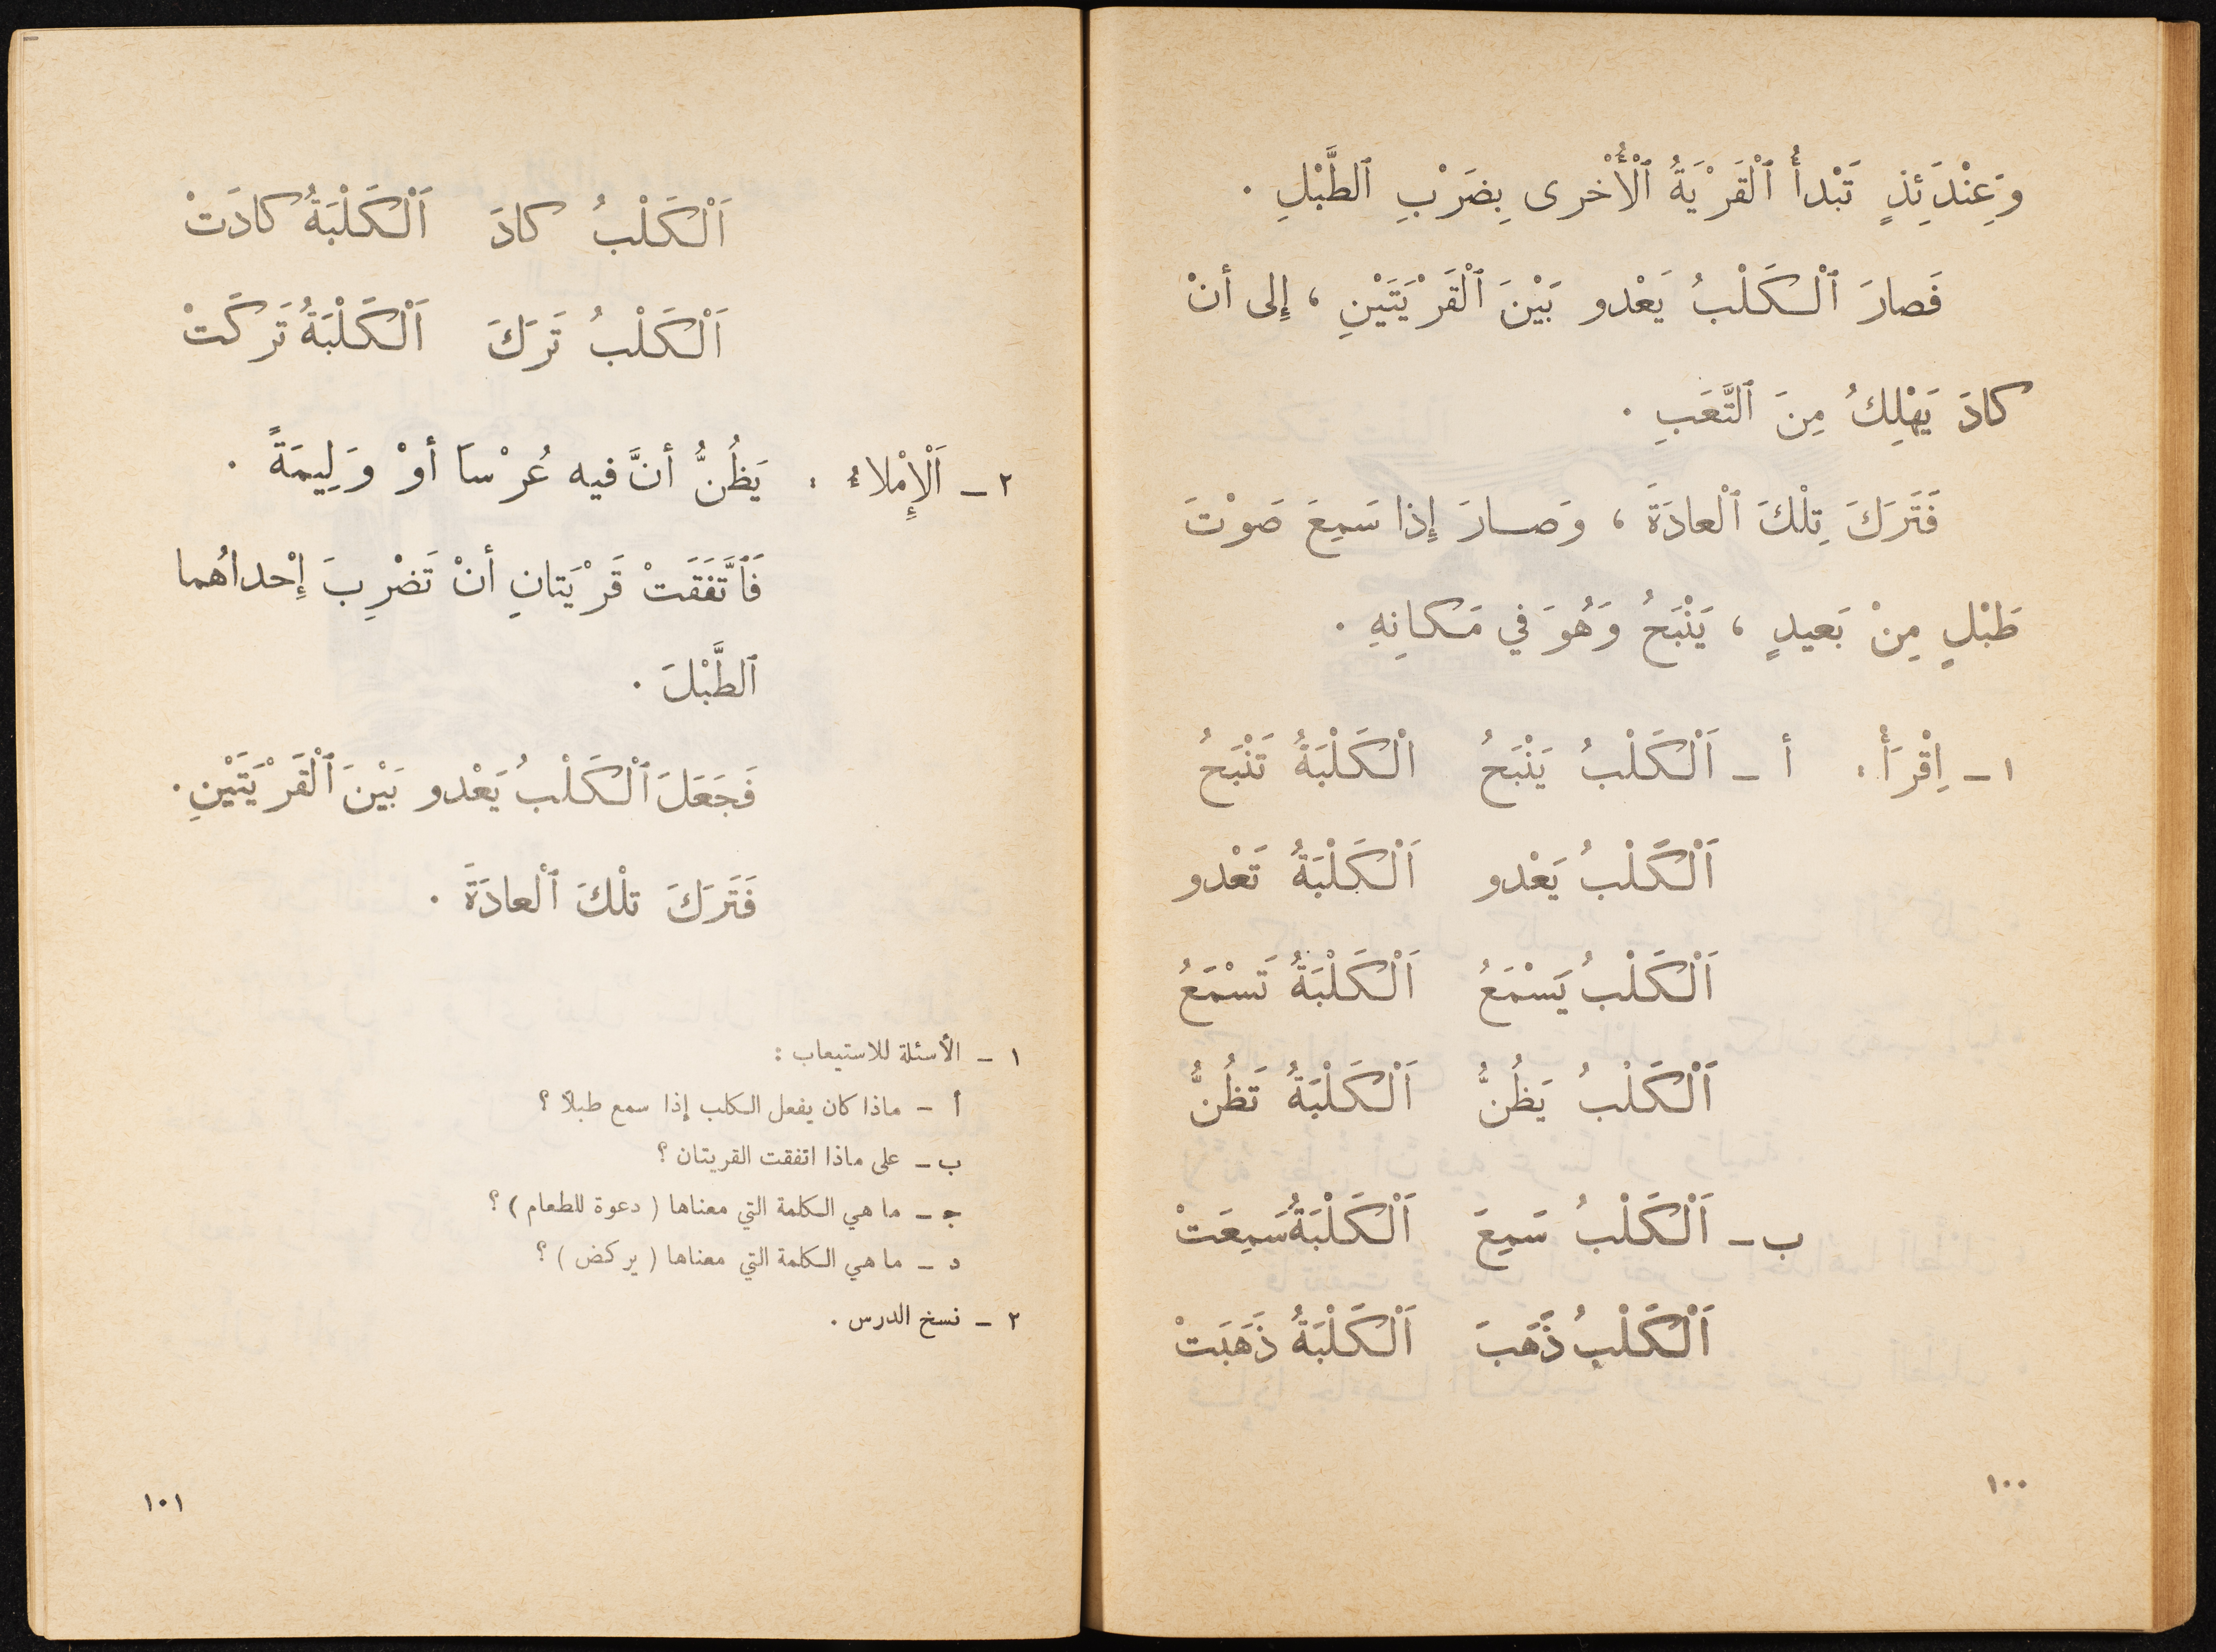 وَعِنْدَئِذٍ تَبْدأُ ٱلْقَرْيَةُ ٱلْأُخْرى بِضَرْبِ ٱلطَّبْلِ .
فَصارَ ٱلْكَلْبُ يَعْدو بَيْنَ ٱلْقَرْيَتَيْنِ ، إِلى أنْ
كادَ يَهْلِكُ مِنَ ٱلتَّعَبِ .
فَتَرَكَ تِلْكَ ٱلْعادَةَ ، وَصارَ إِذا سَمِعَ صَوْتَ
طَبْلٍ مِنْ بَعيدٍ ، يَنْبَحُ وَهُوَ في مَكانِهِ .
١ – اِقْرَأْ : أ – اَلْكَلْبُ يَنْبَحُ الْكَلْبَةُ تَنْبَحُ
اَلْكَلْبُ يَعْدو اَلْكَلْبَةُ تَعْدو
اَلْكَلْبُ يَسْمَعُ اَلْكَلْبَةُ تَسْمَعُ
اَلْكَلْبُ يَظُنُّ اَلْكَلْبَةُ تَظُنُّ
ب – اَلْكَلْبُ سَمِعَ اَلْكَلْبَةُ سَمِعَتْ
اَلْكَلْبُ ذَهَبَ اَلْكَلْبَةُ ذَهَبَتْ
١٠٠
اَلْكَلْبُ كادَ اَلْكَلْبَةُ كادَتْ
اَلْكَلْبُ تَرَكَ اَلْكَلْبَةُ تَرَكَتْ
٢ – اَلْإِمْلاءُ : يَظُنُّ أنَّ فيه عُرْساً أوْ وَلِيمَةً .
فَٱتَّفَقَتْ قَرْيَتانِ أنْ تَضْرِبَ إِحْداهُما
ٱلطَّبْلَ .
فَجَعَلَ ٱلْكَلْبُ يَعْدو بَيْنَ ٱلْقَرْيَتَيْنِ .
فَتَرَكَ تلْكَ ٱلْعادَةَ .
١ – الأسئلة للاستيعاب :
أ – ماذا كان يفعل الكلب إذا سمع طبلاً ؟
ب – على ماذا اتفقت القريتان ؟
ج – ما هي الكلمة التي معناها ( دعوة للطعام ) ؟
د – ما هي الكلمة التي معناها ( يركض ) ؟
٢ – نسخ الدرس .
١٠١